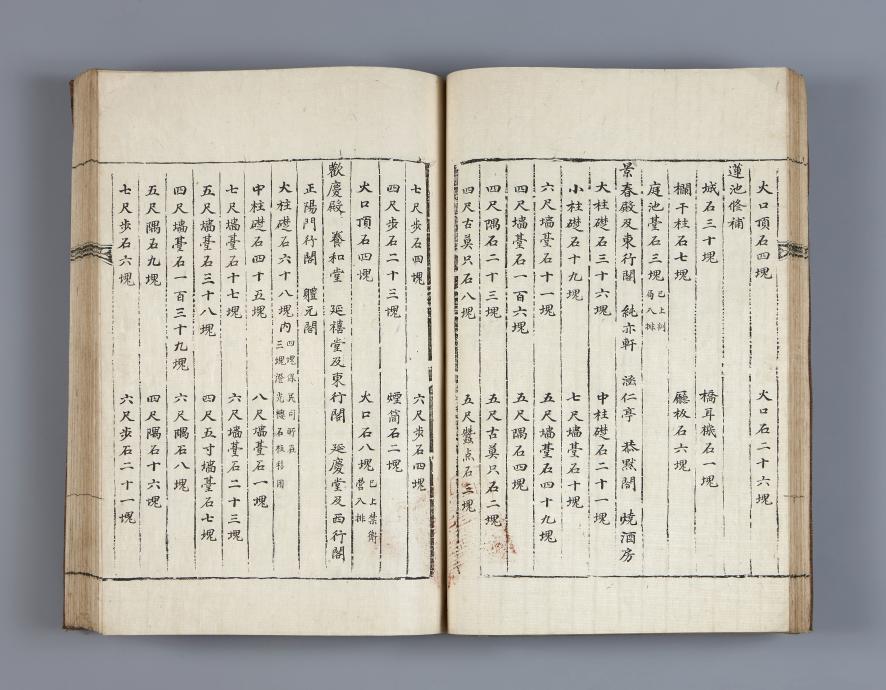 火口頂石四塊 火口石二十六塊
蓮池修補
城石三十塊 橋耳機石一塊
欄干柱石七塊 廳板石六塊
庭池臺石三塊 已上訓局八排
景春殿及東行閣 純亦軒 涵仁亭 恭默閤 燒酒房
大柱礎石三十六塊 中柱礎石二十一塊
小柱礎石十九塊 七尺墻䑓石十塊
六尺墻䑓石十一塊 五尺墻䑓石四十九塊
四尺墻䑓石一百六塊 五尺隅石四塊
四尺隅石二十三塊 五尺古莫只石二塊
四尺古莫只石八塊 五尺蠶点石三塊
七尺步石四塊 六尺步石四塊
四尺步石二十三塊 煙筒石二塊
火口頂石四塊 火口石八塊 已上禁衛營八排
歡慶殿 養和堂 延禧堂及東行閣 延慶堂及西行閣
正陽門行閣 體元閣
大柱礎石六十八塊內 四塊
中柱礎石四十五塊 八尺墻䑓石一塊
七尺墻䑓石十七塊 六尺墻䑓石二十三塊
五尺墻䑓石三十八塊 四尺五寸墻䑓石七塊
四尺墻䑓石一百三十九塊 六尺隅石八塊
五尺隅石九塊 四尺隅石十六塊
七尺步石六塊 六尺步石二十一塊